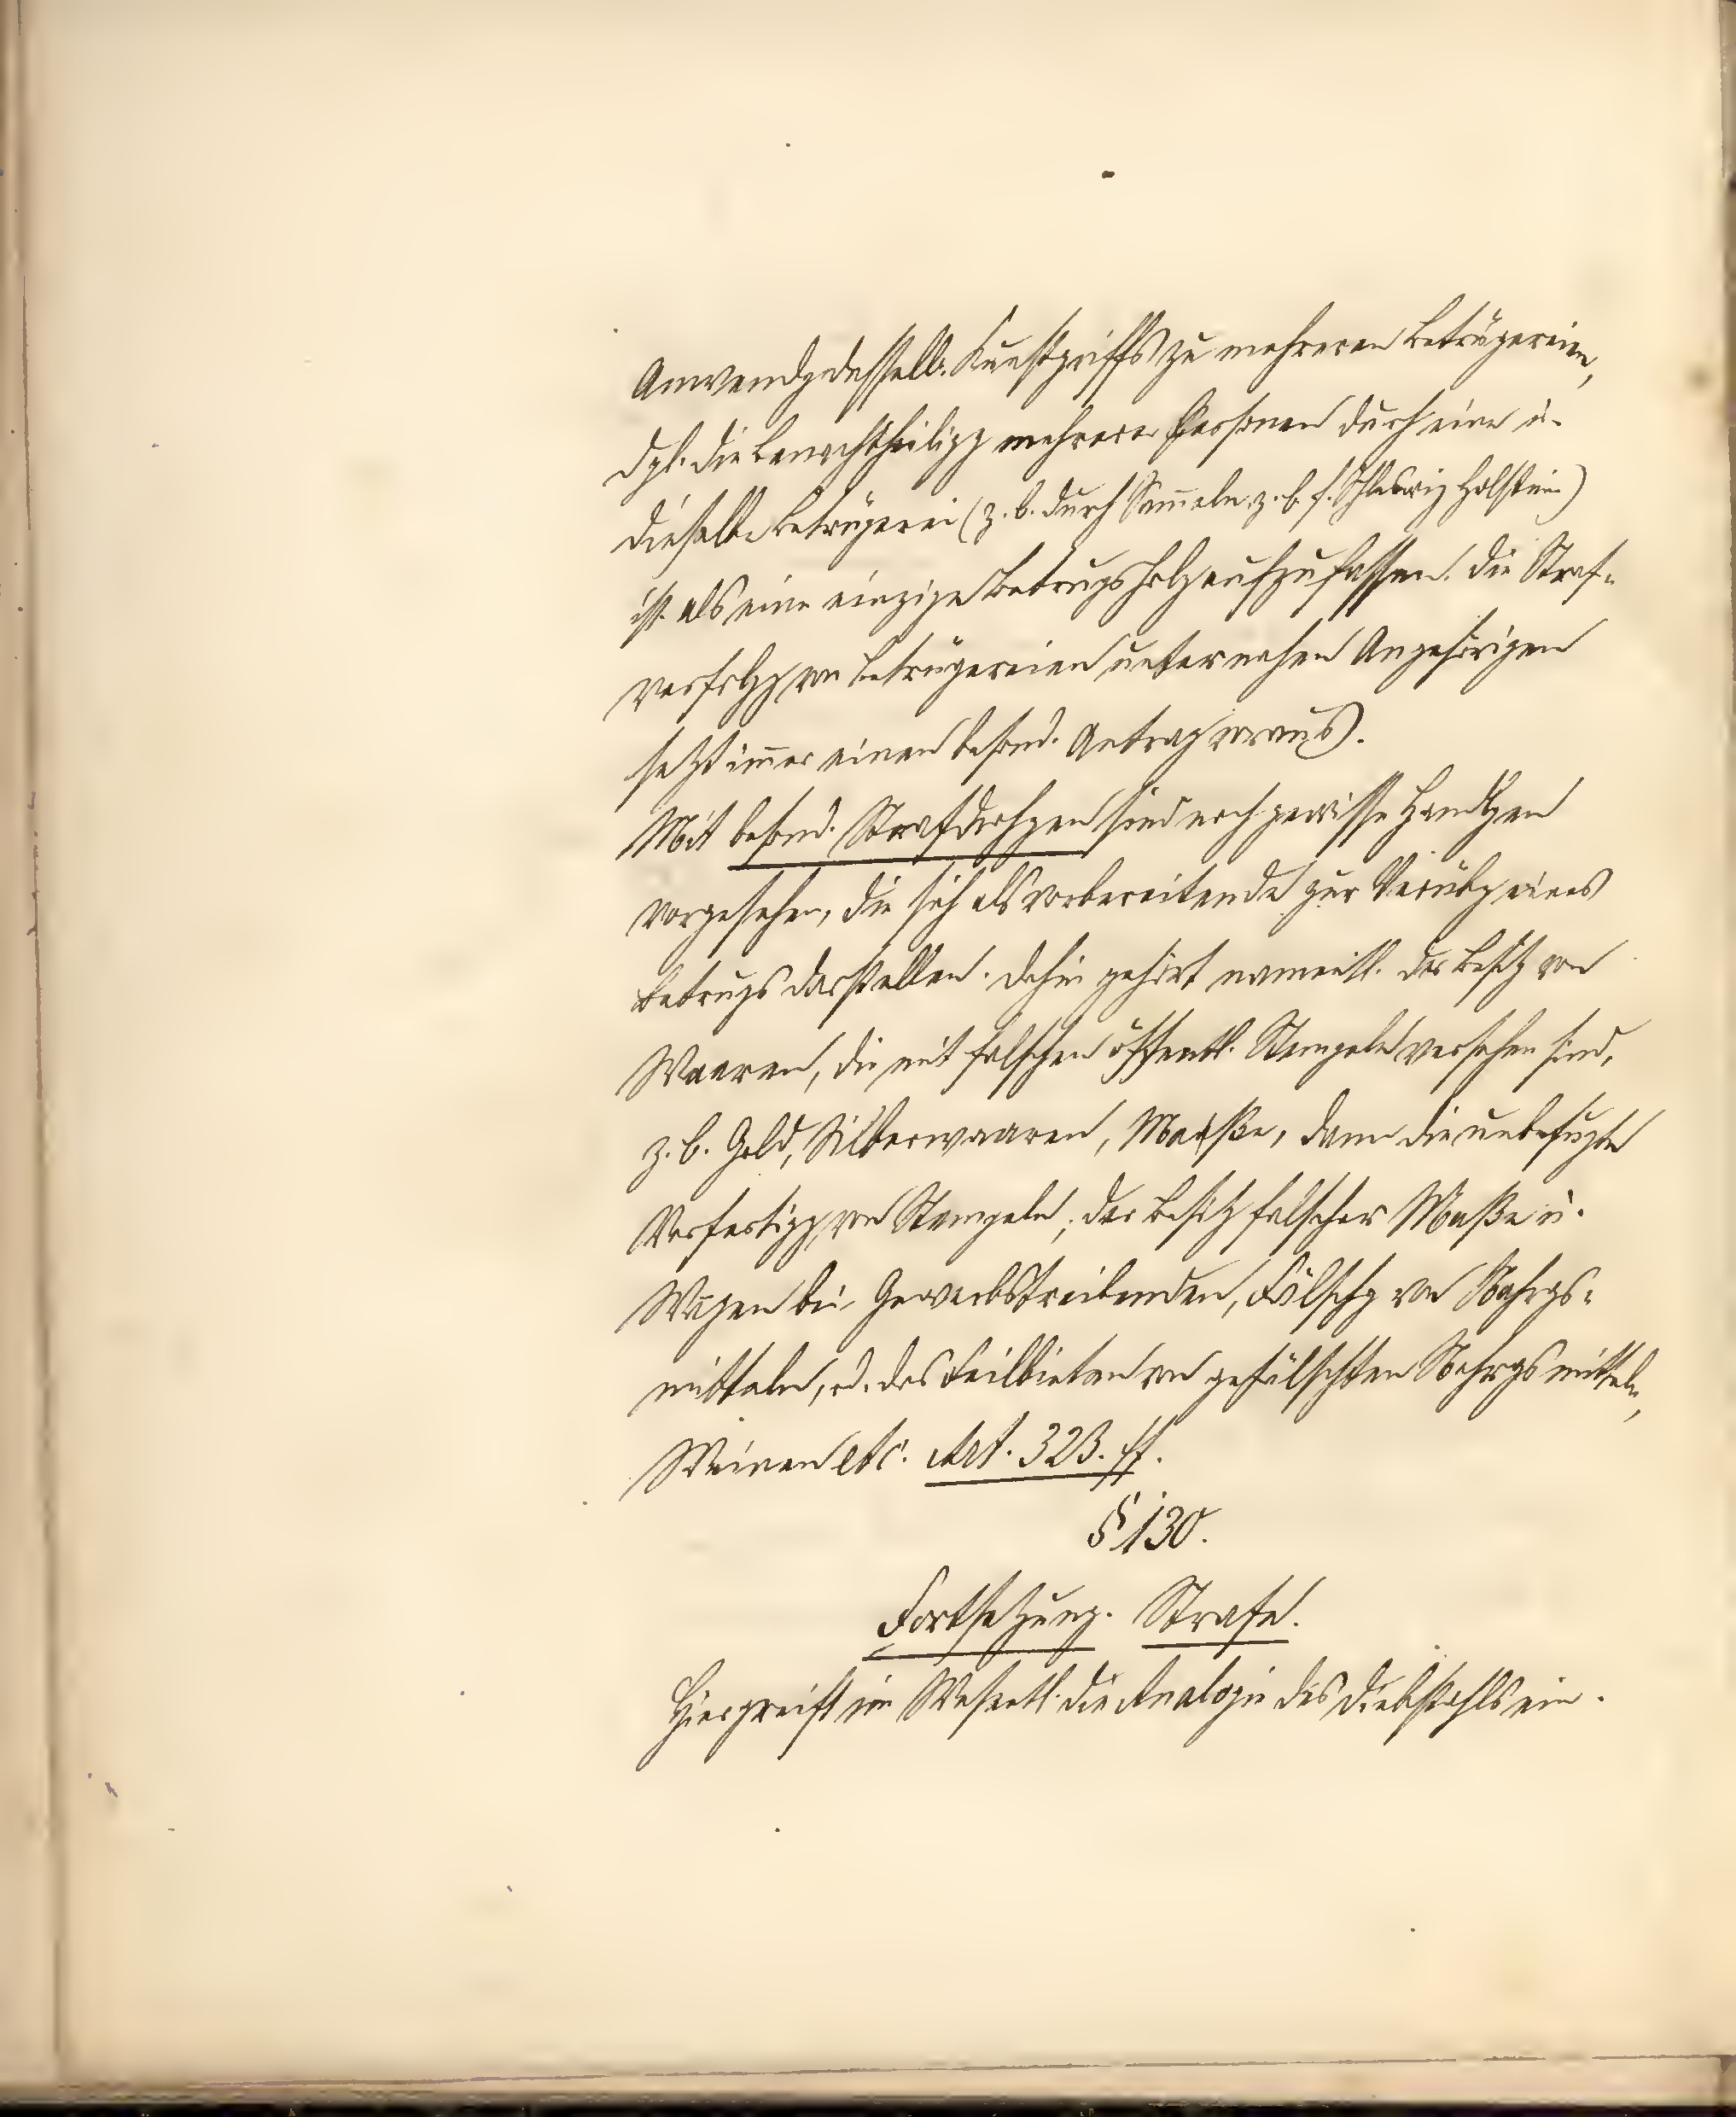 Anwendg desselb. Kunstgriffs zu mehreren Betrügereien,
dgl. die Benachtheiligg mehrerer Personen durch eine u.
dieselbe Betrügerei (z. B. durch Sam̄eln z. B. f. Schleswig Holstein)
ist als eine einzige Betrugs aufzufassen. Die Straf-
verfolgg von Betrügereien unter nahen Angehörigen
setzt im̄er einen besond. Antrag voraus.
Mit besond. Strafdrohgen sind noch gewisse Handlgen
vorgesehen, die sich als vorbereitende zur Verübg eines
Betrugs darstellen. Dahin gehört namentl. der Besitz von
Waaren, die mit falschen öffentl. Stempeln versehen sind,
z. B. Gold, Silberwaaren, Maaße, dann die unbefugte
Verfertigg von Stempeln, der Besitz falscher Maße u.
Wagen bei Gewerbstreibenden, Fälschg von Nahrgs-
mitteln, od. das Feilbieten von gefälschten Nahrgsmitteln,
Weinen etc. Art. 323. ff.
§ 130.
Fortsetzung. Strafe.
Hier greift im Wesentl. die Analogie des Diebstahls ein.